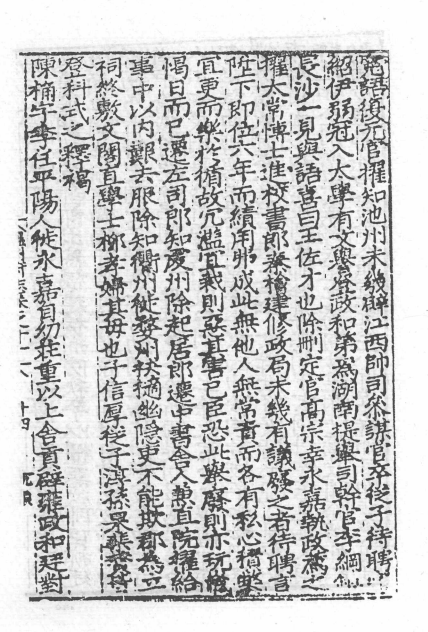 免語復元官擢知池州未幾辟江西帥司參謀官卒從子待聘
紹伊弱冠入大學有文譽登政和第為湖南提舉司幹官李綱
長沙一見與語喜曰王佐才也除刪定官高宗幸永嘉執政薦之
擢太常博士進校書郎秦檜建修政局未幾有議廢之者待聘言
陛下即位六年而績用弗成此無他人無常責而各有私心積弊
宜更而樂於循故冗濫宜裁則惡其害已臣恐此舉廢則亦玩
愒日而已遷左司郎知處州除起居郎遷中書舍人兼直院擢給
事中以內艱去服除知衢州徙婺州抉擿幽隱吏不能欺郡為立
祠終敷文閣直學士柳孝婦其母也子信厚從子淳孫杲
登科式之釋褐
陳桷字季任平陽人徙永嘉自幼莊重以上舍貢辟雍政和廷對
十四